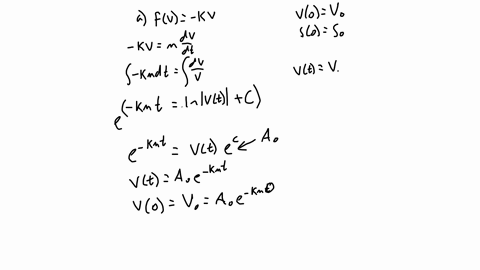 a) f(v) = -KV
V(0) = V₀
S(0) = S₀
-KV = m dV/dt
∫-Kmdt = ∫dV/V
V(t) = V.
e^(-Kmt = ln|V(t)| + C)
e^-Kmt = V(t) e^c ↙ A₀
V(t) = A₀ e^-Kmt
V(0) = V₀ = A₀ e^-Km0